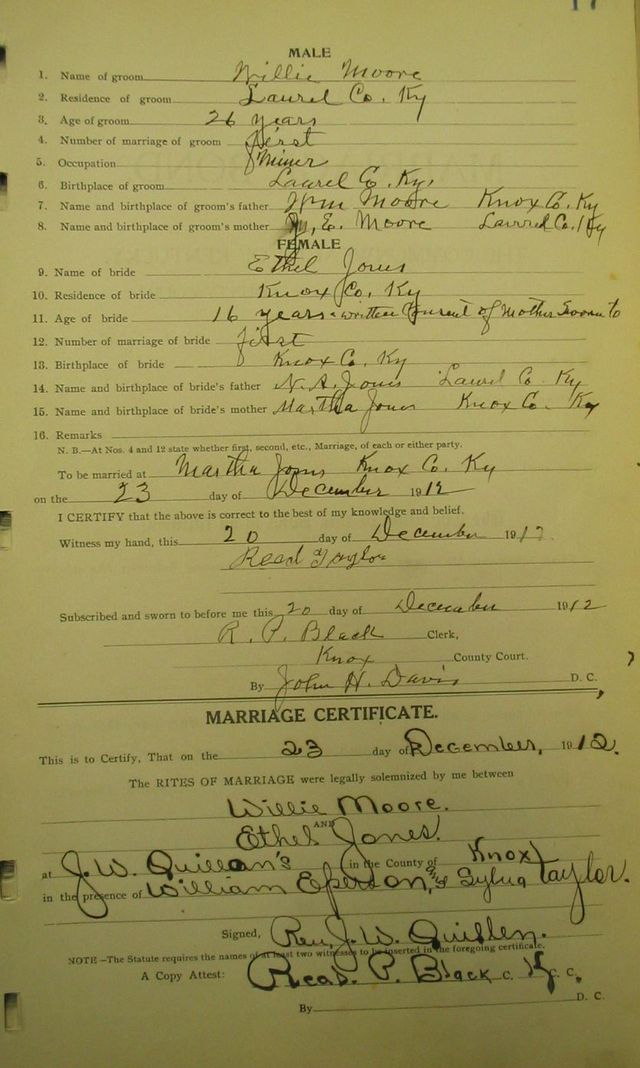 17
MALE
1. Name of groom Willie Moore
2. Residence of groom Laurel Co. Ky
3. Age of groom 26 years
4. Number of marriage of groom first
5. Occupation Miner
6. Birthplace of groom Laurel Co. Ky.
7. Name and birthplace of groom's father Wm Moore Knox Co. Ky
8. Name and birthplace of groom's mother E. Moore Laurel Co. Ky
FEMALE
9. Name of bride Ethel Jones
10. Residence of bride Knox Co. Ky
11. Age of bride 16 years written Consent of Mother Sworn to
12. Number of marriage of bride first
13. Birthplace of bride Knox Co. Ky
14. Name and birthplace of bride's father N. A. Jones Laurel Co Ky
15. Name and birthplace of bride's mother Martha Jones Knox Co. Ky
16. Remarks
N. B.—At Nos. 4 and 12 state whether first, second, etc., Marriage, of each or either party.
To be married at Martha Jones Knox Co. Ky
on the 23 day of December 1912
I CERTIFY that the above is correct to the best of my knowledge and belief.
Witness my hand, this 20 day of December 191
Read Taylor
Subscribed and sworn to before me this 20 day of December 1912
R. P. Black Clerk,
Knox County Court.
By John H. Davis D. C.
MARRIAGE CERTIFICATE.
This is to Certify, That on the 23 day of December, 1912.
The RITES OF MARRIAGE were legally solemnized by me between
Willie Moore.
AND
Ethel Jones.
at J. W. Quillan's in the County of Knox
in the presence of William Eperson, and Taylor.
Signed, Rev. J. W. Quillen.
NOTE—The Statute requires the names of at least two witnesses to be inserted in the foregoing certificate.
A Copy Attest: Read P. Black C. K. C. C.
By D. C.